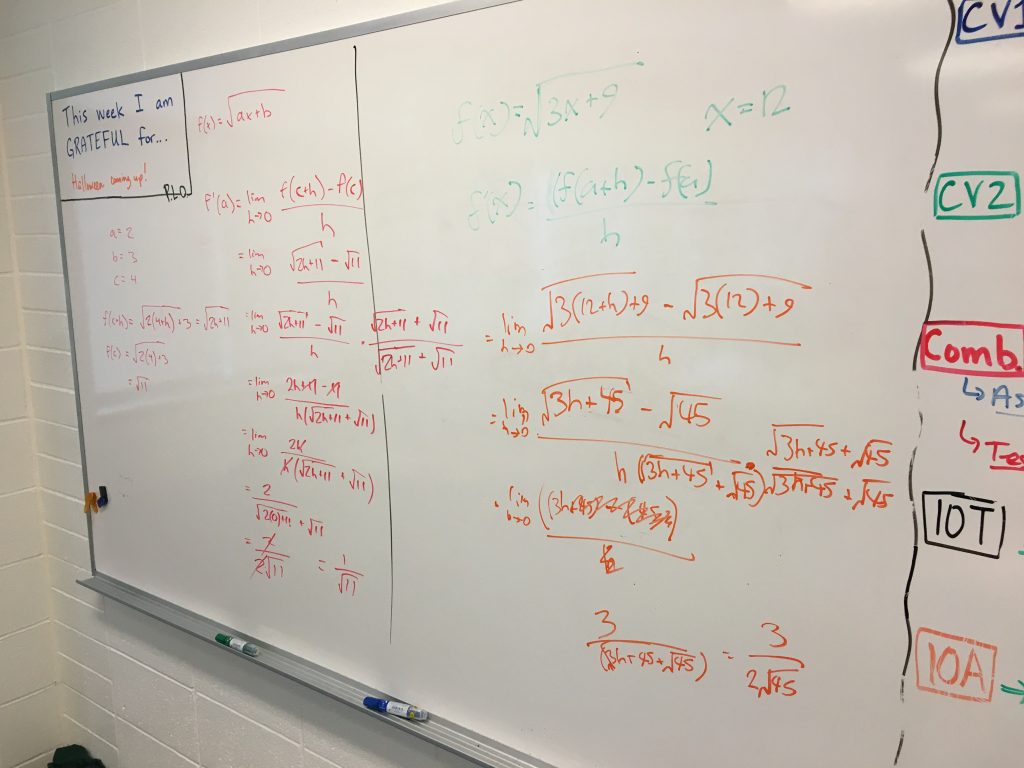 This week I am
GRATEFUL for...
Halloween coming up!
P.L.O.
f(x) = √(ax+b)
a = 2
b = 3
c = 4
f(c+h) = √(2(4+h)+3) = √(2h+11)
f(c) = √(2(4)+3)
= √11
f'(a) = lim h→0 (f(c+h) - f(c))/h
= lim h→0 (√(2h+11) - √11)/h
= lim h→0 (√(2h+11) - √11)/h · (√(2h+11) + √11)/(√(2h+11) + √11)
= lim h→0 (2h+11-11)/(h(√(2h+11) + √11))
= lim h→0 2h/(h(√(2h+11) + √11))
= 2/(√(2(0)+11) + √11)
= 2/(2√11) = 1/√11
f(x) = √(3x+9) x = 12
f'(x) = (f(a+h) - f(a))/h
= lim h→0 (√(3(12+h)+9) - √(3(12)+9))/h
= lim h→0 (√(3h+45) - √45)/h(√(3h+45) + √45) · (√(3h+45) + √45)/(√(3h+45) + √45)
lim h→0
3/(√(3h+45) + √45) = 3/(2√45)
CV1
CV2
Comb.
↳ As
↳ Tes
IOT
IOA